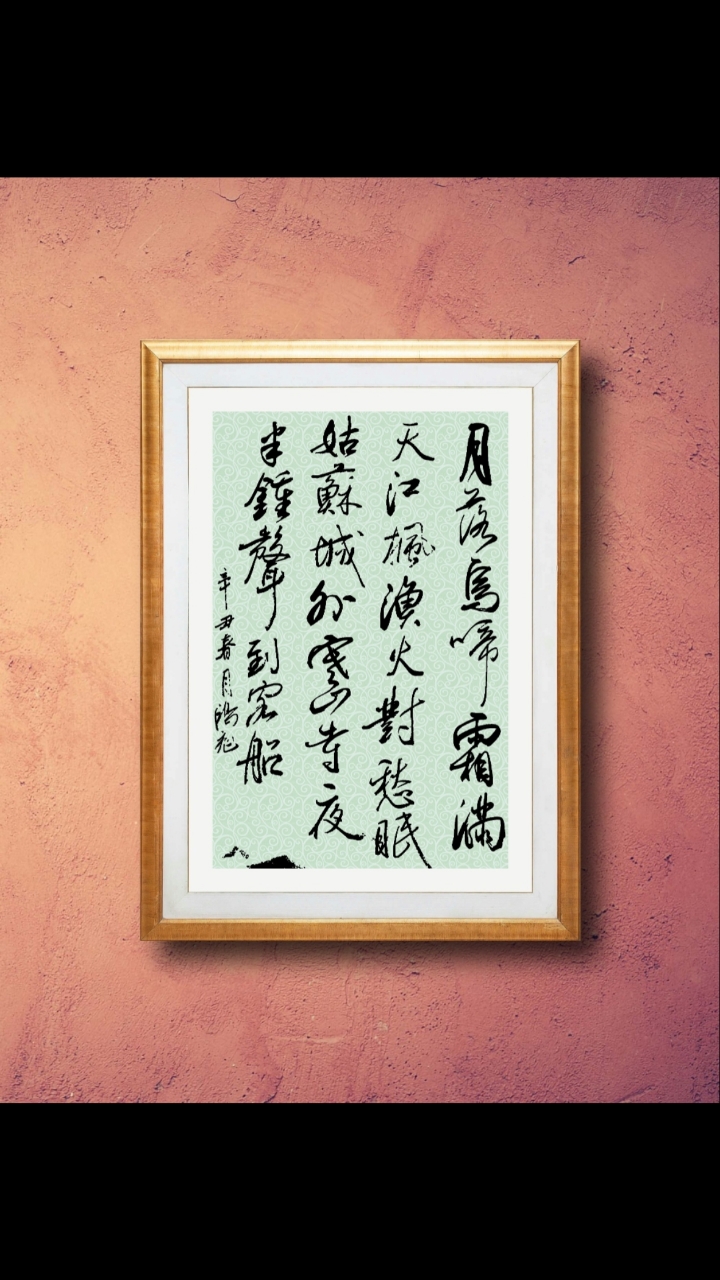 月落烏啼霜滿
天江楓漁火對愁眠
姑蘇城外寒山寺夜
半鐘聲到客船
辛丑春月